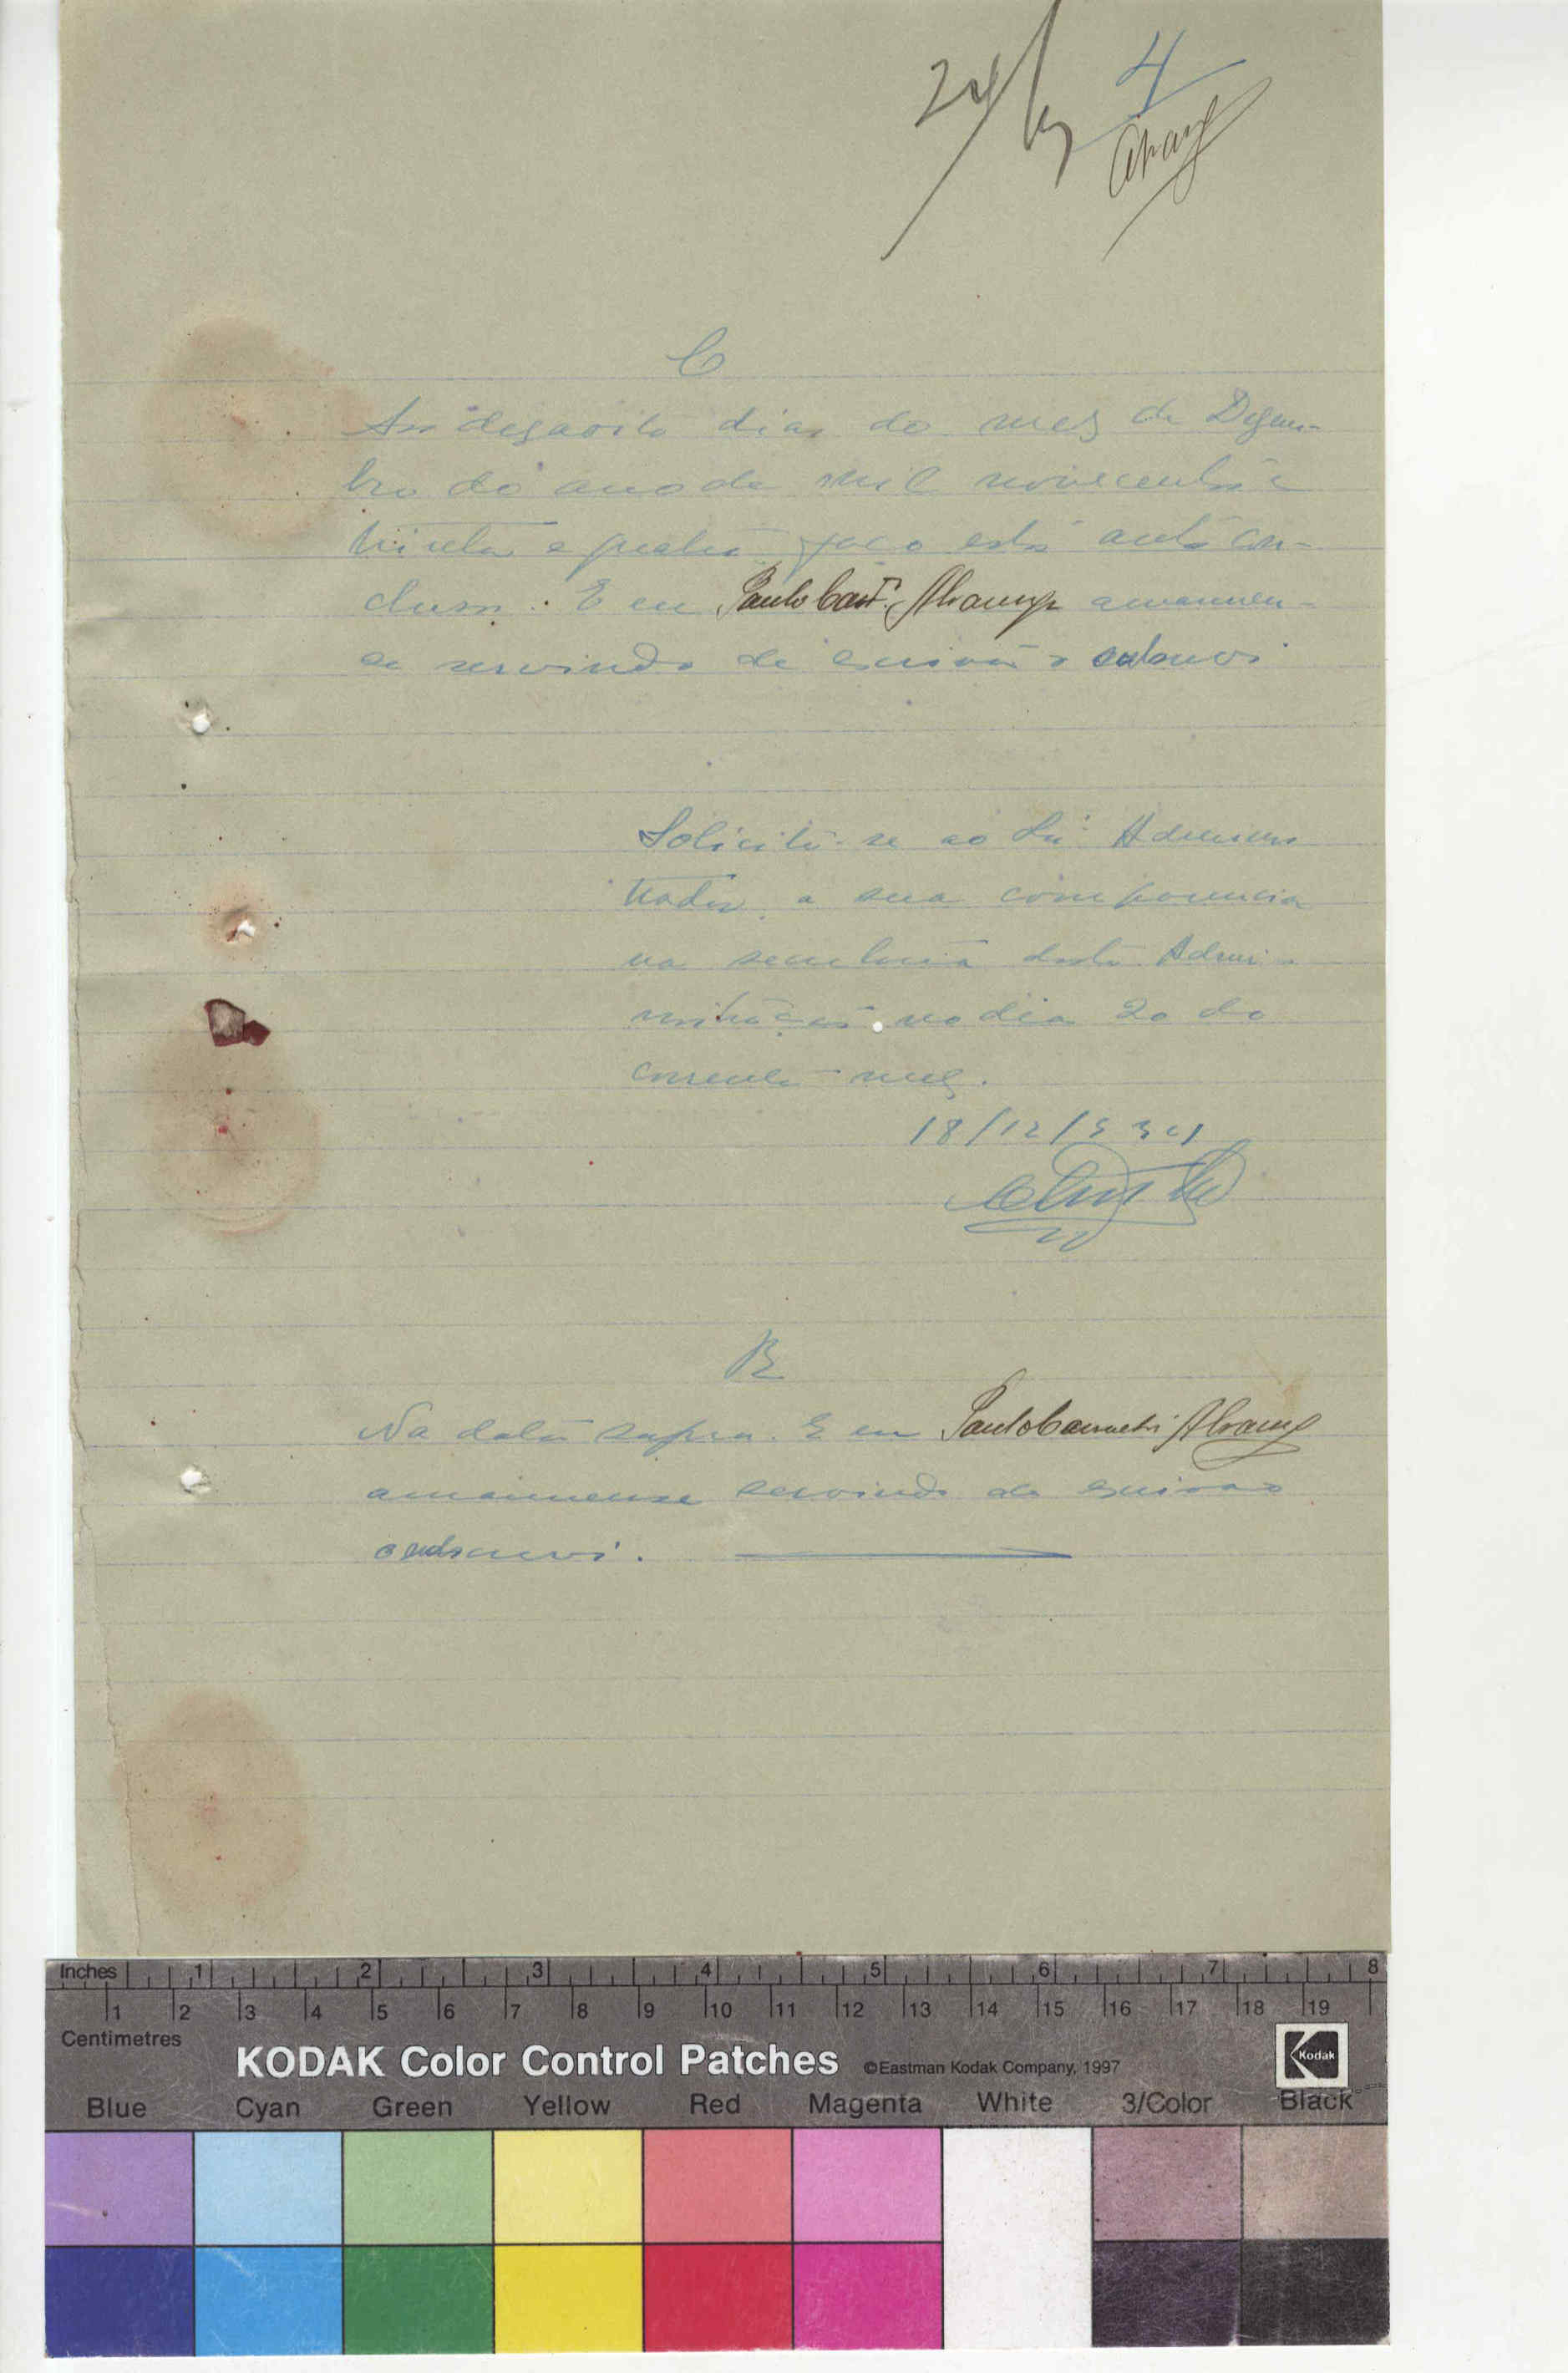 24/ 4
C
Aos desaoito dias do mes de Dezem-
bro do ano de mil novecentos e
trinta e quatro faço estes autos con-
clusos. E eu Paulo amanuen-
se servindo de escrivão o subscrevi
Solicite-se ao Snr. Adminis
trador, a sua comparencia
na secretaria desta Admi-
nistração no dia 20 do
corrente mez.
18/12/934
R
Na data supra. E eu Paulo
amanuense servindo de escrivão
o subscrevi.
Inches 1 2 3 4 5 6 7 8
1 2 3 4 5 6 7 8 9 10 11 12 13 14 15 16 17 18 19
Centimetres
KODAK Color Control Patches ©Eastman Kodak Company, 1997 Kodak
Blue Cyan Green Yellow Red Magenta White 3/Color Black